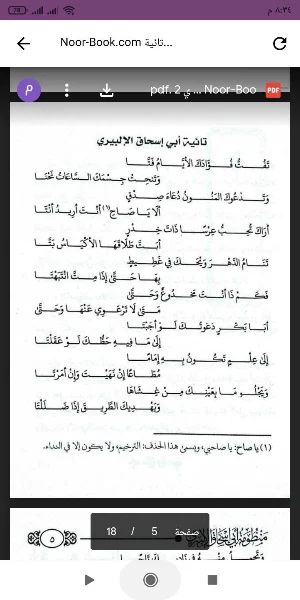 ٨:٣٤ م
78
Noor-Book.com تائية...
P
pdf. 2 ي... Noor-Boo
PDF
تائية أبي إسحاق الإلبيري
تَفُتُّ فُؤَادَكَ الأَيَّامُ فَتَّا
وَتَنْحِتُ جِسْمَكَ السَّاعَاتُ نَحْتَا
وَتَدْعُوكَ المَنُونُ دُعَاءَ صِدْقٍ
أَلَا يَا صَاحِ(١) أَنْتَ أُرِيدُ أَنْتَا
أَرَاكَ تُحِبُّ عِرْسًا ذَاتَ خِدْرٍ
أَبَتَّ طَلَاقَهَا الأَكْيَاسُ بَتَّا
تَنَامُ الدَّهْرَ وَيْحَكَ فِي غَطِيطٍ
بِهَا حَتَّى إِذَا مِتَّ انْتَبَهْتَا
فَكَمْ ذَا أَنْتَ مَخْدُوعٌ وَحَتَّى
مَتَى لَا تَرْعَوِي عَنْهَا وَحَتَّى
أَبَا بَكْرٍ دَعَوْتُكَ لَوْ أَجَبْتَا
إِلَى مَا فِيهِ حَظُّكَ لَوْ عَقَلْتَا
إِلَى عِلْمٍ تَكُونُ بِهِ إِمَامًا
مُطَاعًا إِنْ نَهَيْتَ وَإِنْ أَمَرْتَا
وَيَجْلُو مَا بِعَيْنِكَ مِنْ غِشَاهَا
وَيَهْدِيكَ الطَّرِيقَ إِذَا ضَلَلْتَا
(١) يا صاح: يا صاحبي، ويسمى هذا الحذف: الترخيم، ولا يكون إلا في النداء.
صفحة 5 / 18
٥